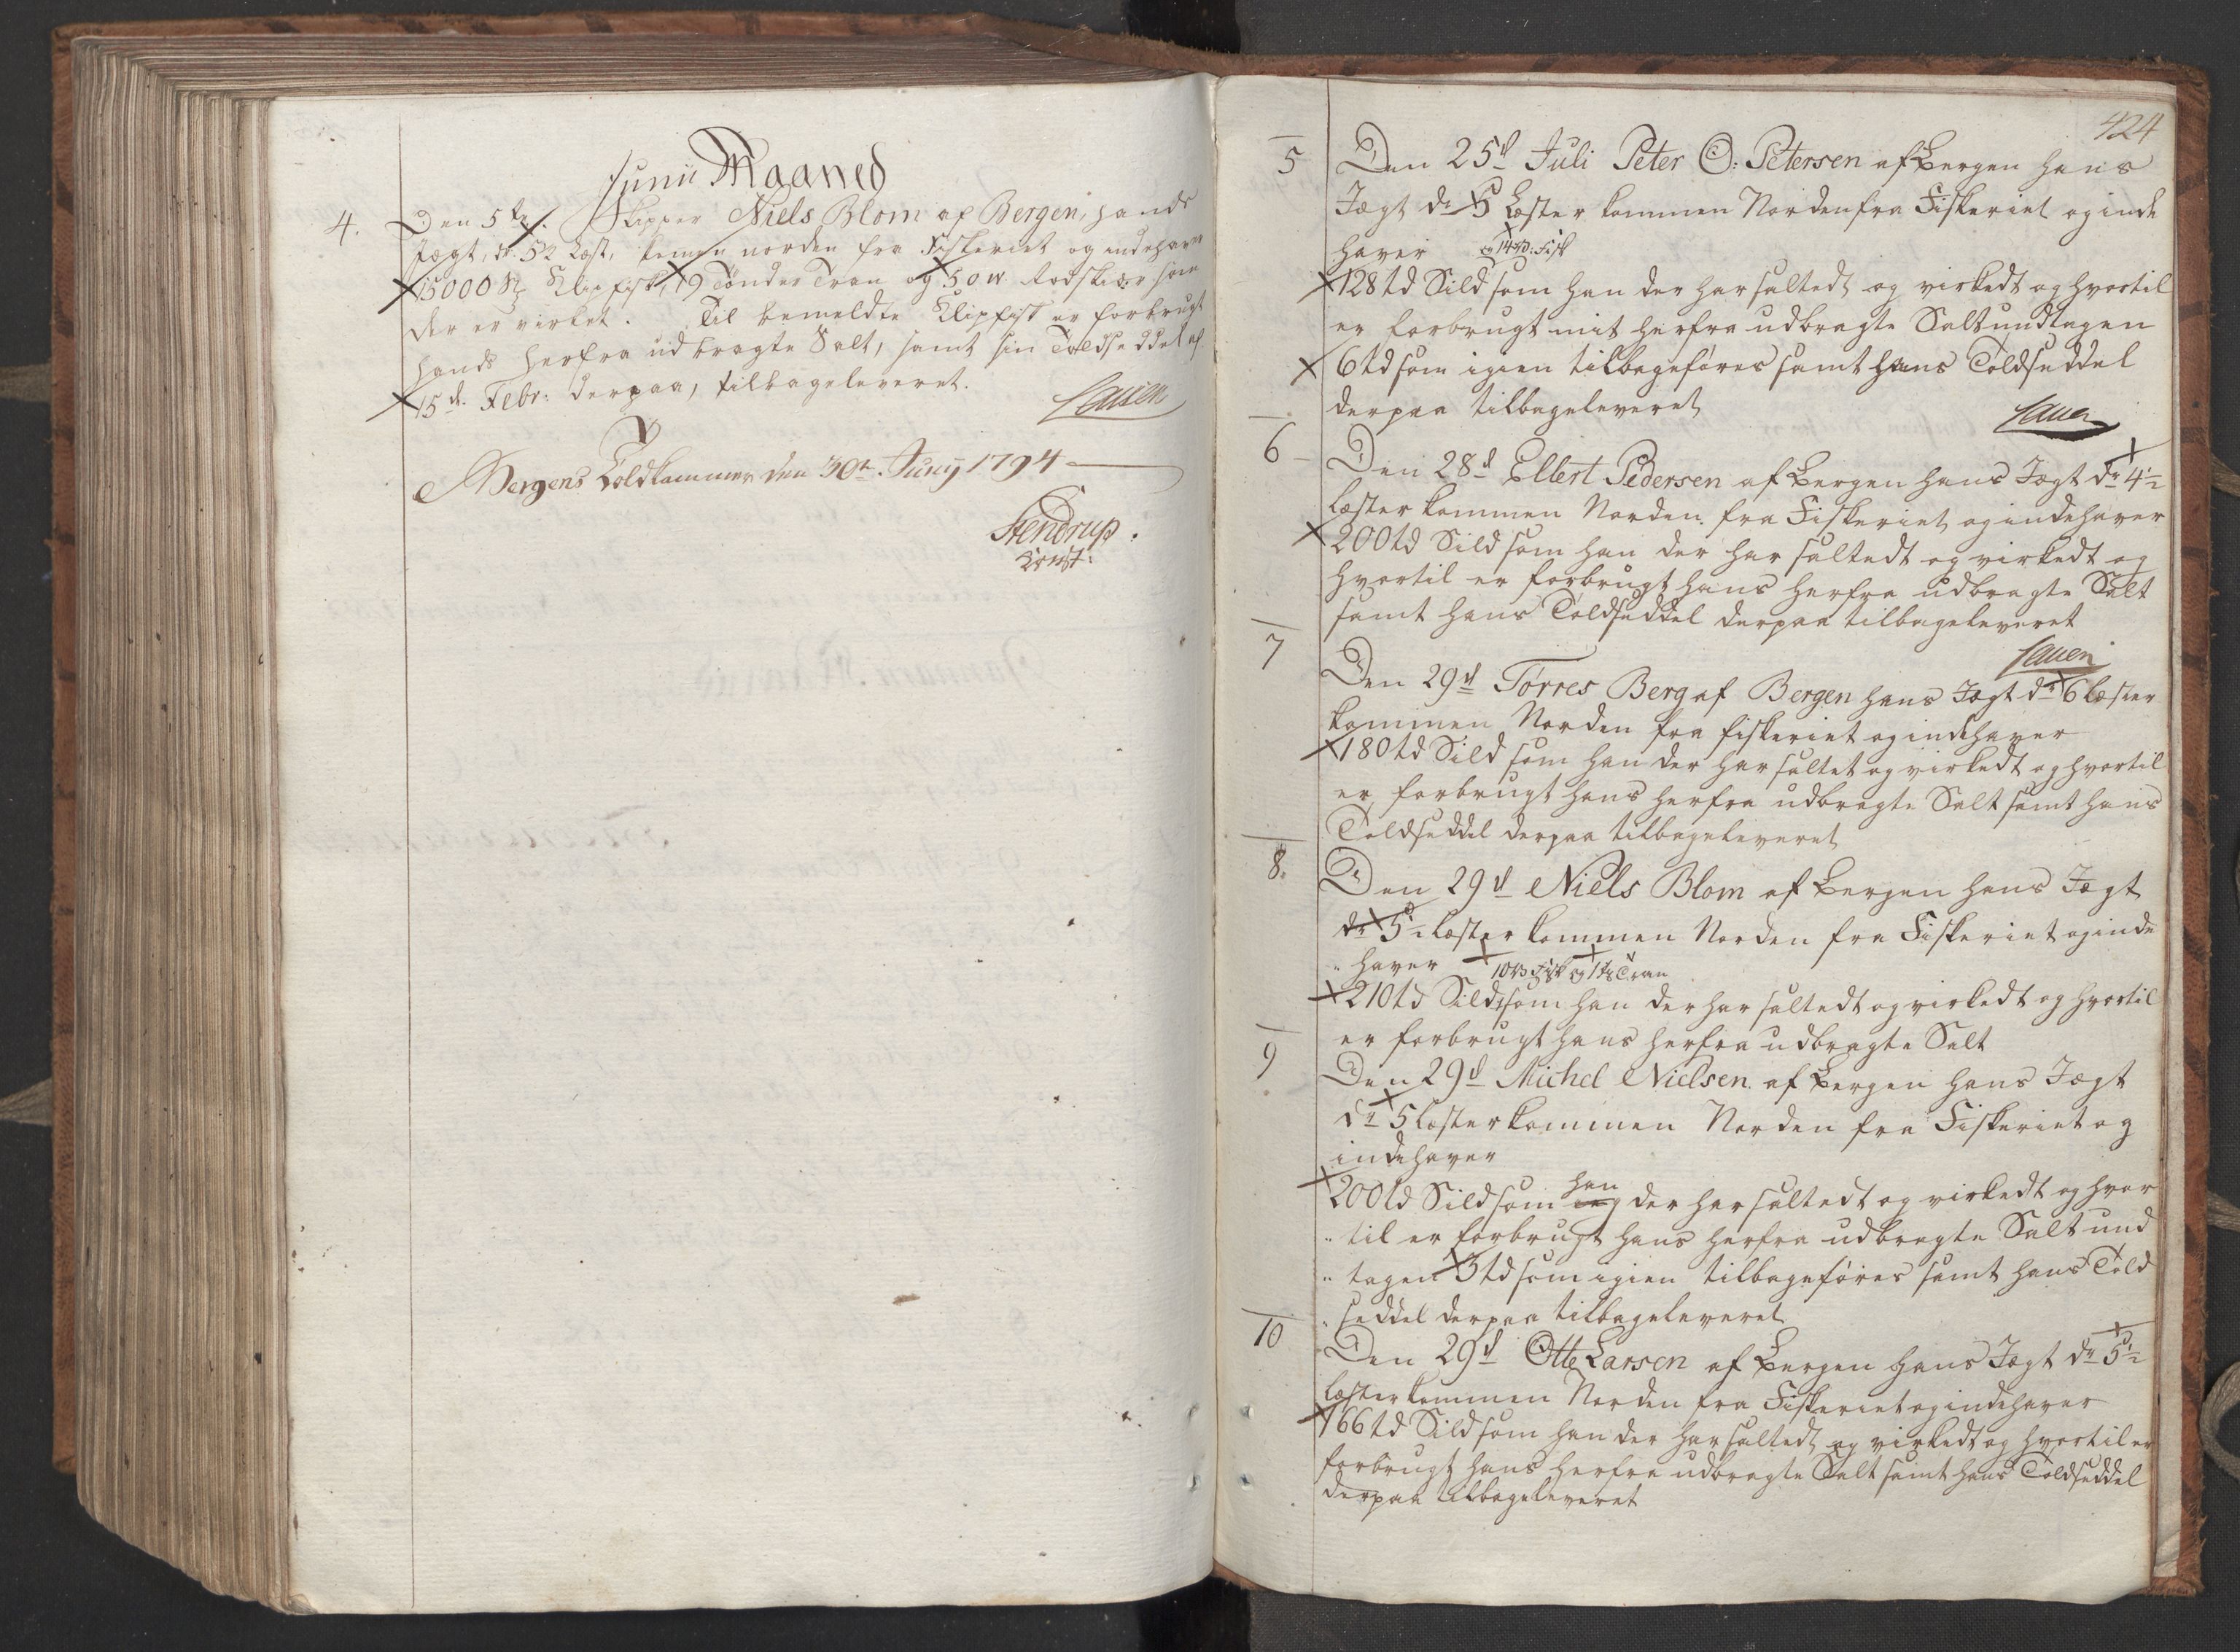 Junii Maaned
4. Den 5te Skipper Niels Blom af Bergen, hands
Jægt, dr. 5½ Læst, kommen norden fra Fiskeriet og indehaver
15000 ℔ Klipfisk, 9 Tønder Tran og 50 W Rodskiær som
der er virket. Til bemeldte Klipfisk er forbrugt
hands herfra udbragte Salt, samt sin Toldseddel af
15de Febr: derpaa, tilbageleveret.
Lauen
Bergens Toldkammer den 30te Junÿ 1794
Stendrup.
Const:
424
5 Den 25d Juli Peter O: Petersen af Bergen hans
Jægt dr 5 Læster kommen Norden fra Fiskeriet og inde
haver og 14 Fisk
128 td Sild som han der har saltedt og virkedt og hvortil
er forbrugt mit herfra udbragte Salt undtagen
6 td som igien tilbageføres samt hans Toldseddel
derpaa tilbageleveret
Lauen
6 Den 28d Ellert Pedersen af Bergen hans Jægt dr 4½
Læster kommen Norden fra Fiskeriet og indehaver
200 td Sild som han der har saltedt og virkedt og
hvortil er forbrugt hans herfra udbragte Salt
samt hans Toldseddel derpaa tilbageleveret
Lauen
7 Den 29d Torres Berg af Bergen hans Jægt dr 6 læster
kommen Norden fra fiskeriet og indehaver
180 td Sild som han der har saltet og virkedt og hvortil
er forbrugt hans herfra udbragte Salt samt hans
Toldseddel derpaa tilbageleveret
8. Den 29d Niels Blom af Bergen hans Jægt
dr 5½ læster kommen Norden fra Fiskeriet og inde
" haver 10 Fisk og 1 td Tran
210 td Sild som han der har saltedt og virkedt og hvortil
er forbrugt hans herfra udbragte Salt
9 Den 29d Michel Nielsen af Bergen hans Jægt
dr 5 læster kommen Norden fra Fiskeriet og
indehaver
200 td Sild som ieg han der har saltedt og virkedt og hvor
" til er forbrugt hans herfra udbragte Salt und
" tagen 3 td som igien tilbageføres samt hans Told
" seddel derpaa tilbageleveret
10 Den 29d Otte Larsen af Bergen hans Jægt dr 5½
læster kommen Norden fra Fiskeriet og indehaver
166 td Sild som han der har saltedt og virkedt og hvortil er
forbrugt hans herfra udbragte Salt samt hans Toldseddel
derpaa tilbageleveret